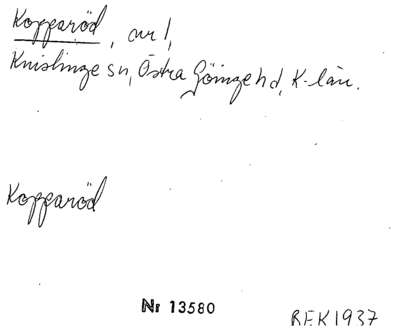 Kopparöd, av 1,
Knislinge sn, Östra Göinge hd, K-län.
Kopparöd
Nr 13580
REK 1937